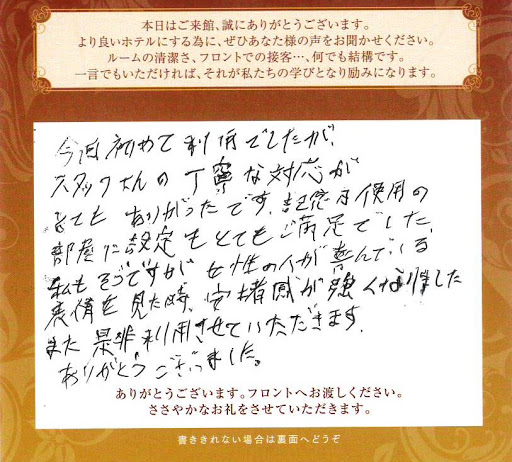 本日はご来館、誠にありがとうございます。
より良いホテルにする為に、ぜひあなた様の声をお聞かせください。
ルームの清潔さ、フロントでの接客…、何でも結構です。
一言でもいただければ、それが私たちの学びとなり励みになります。
今回初めて利用でしたが、
スタッフさんの丁寧な対応が
とても ありがったです。記念日使用の
部屋に設定もとてもご満足でした。
私もそうですが 女性の人が喜んでいる
表情を見た時、安堵感が強く
また是非利用させていただきます。
ありがとうございました。
ありがとうございます。フロントへお渡しください。
ささやかなお礼をさせていただきます。
書ききれない場合は裏面へどうぞ